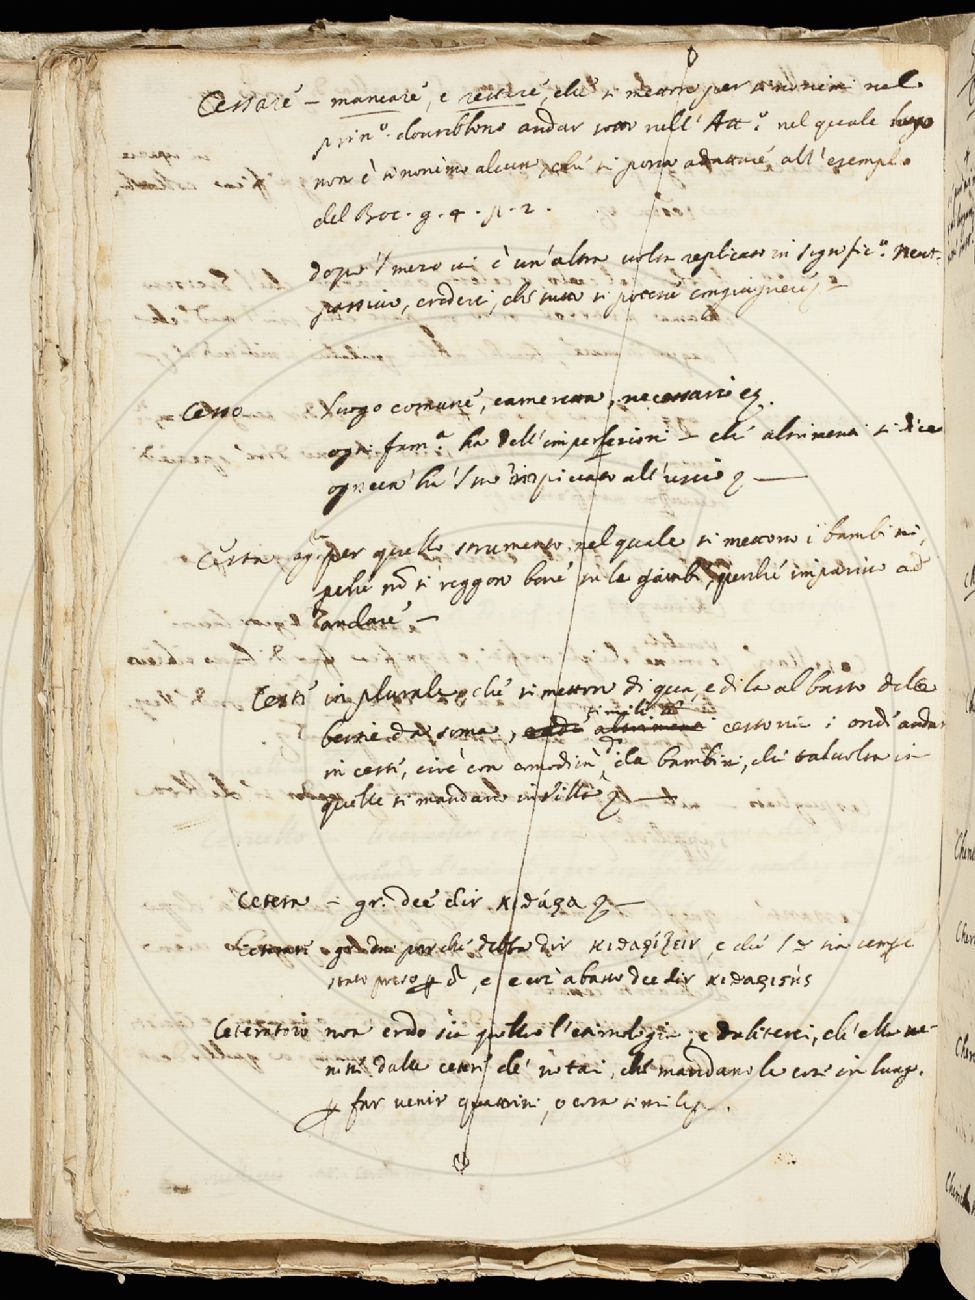 Cessare – mancare, e restare, che si metton per sinonimi nel
prin.º dovrebbono andar sotto nell'Att.º nel quale
non è sinonimo alcuno, che si possa adattare all'esemplo
del Boc. g. 4. p. 2.
dopo 'l mezo vi è un'altra volta replicato in signific.º Neut.
passivo, crederei, che tutto si potesse congiugnere
Cesso Luogo comune, cameretta, necessario
ogni fem.ª ha dell'imperfezioni – che altrimenti si dice
ognuno ha 'l suo impiccato all'uscio
Cesta per quello strumento, nel quale si mettono i bambini,
perche nō si reggon bene su le gambe, perche imparino ad
andare –
Ceste in plurale, che si metton di qua, e di la al basto delle
bestie da soma, simili a' cestoni: onde andar
in ceste, cioè con da bambini, che talvolta in
quelle si mandano in Villa
Cetera – gr. dee dir κιθάρα
Ceterare gr. dir κιθαρίζειν, e che
stato preso p , e e così abasso dee dir κιθαριστής
Ceteratoio non credo sia quella l'etimologia, e dubiterei, ch'ella ve-
nisse dalle cetere de' notai, che mandano le cose in lungo
p far venir quattrini, o cosa simile